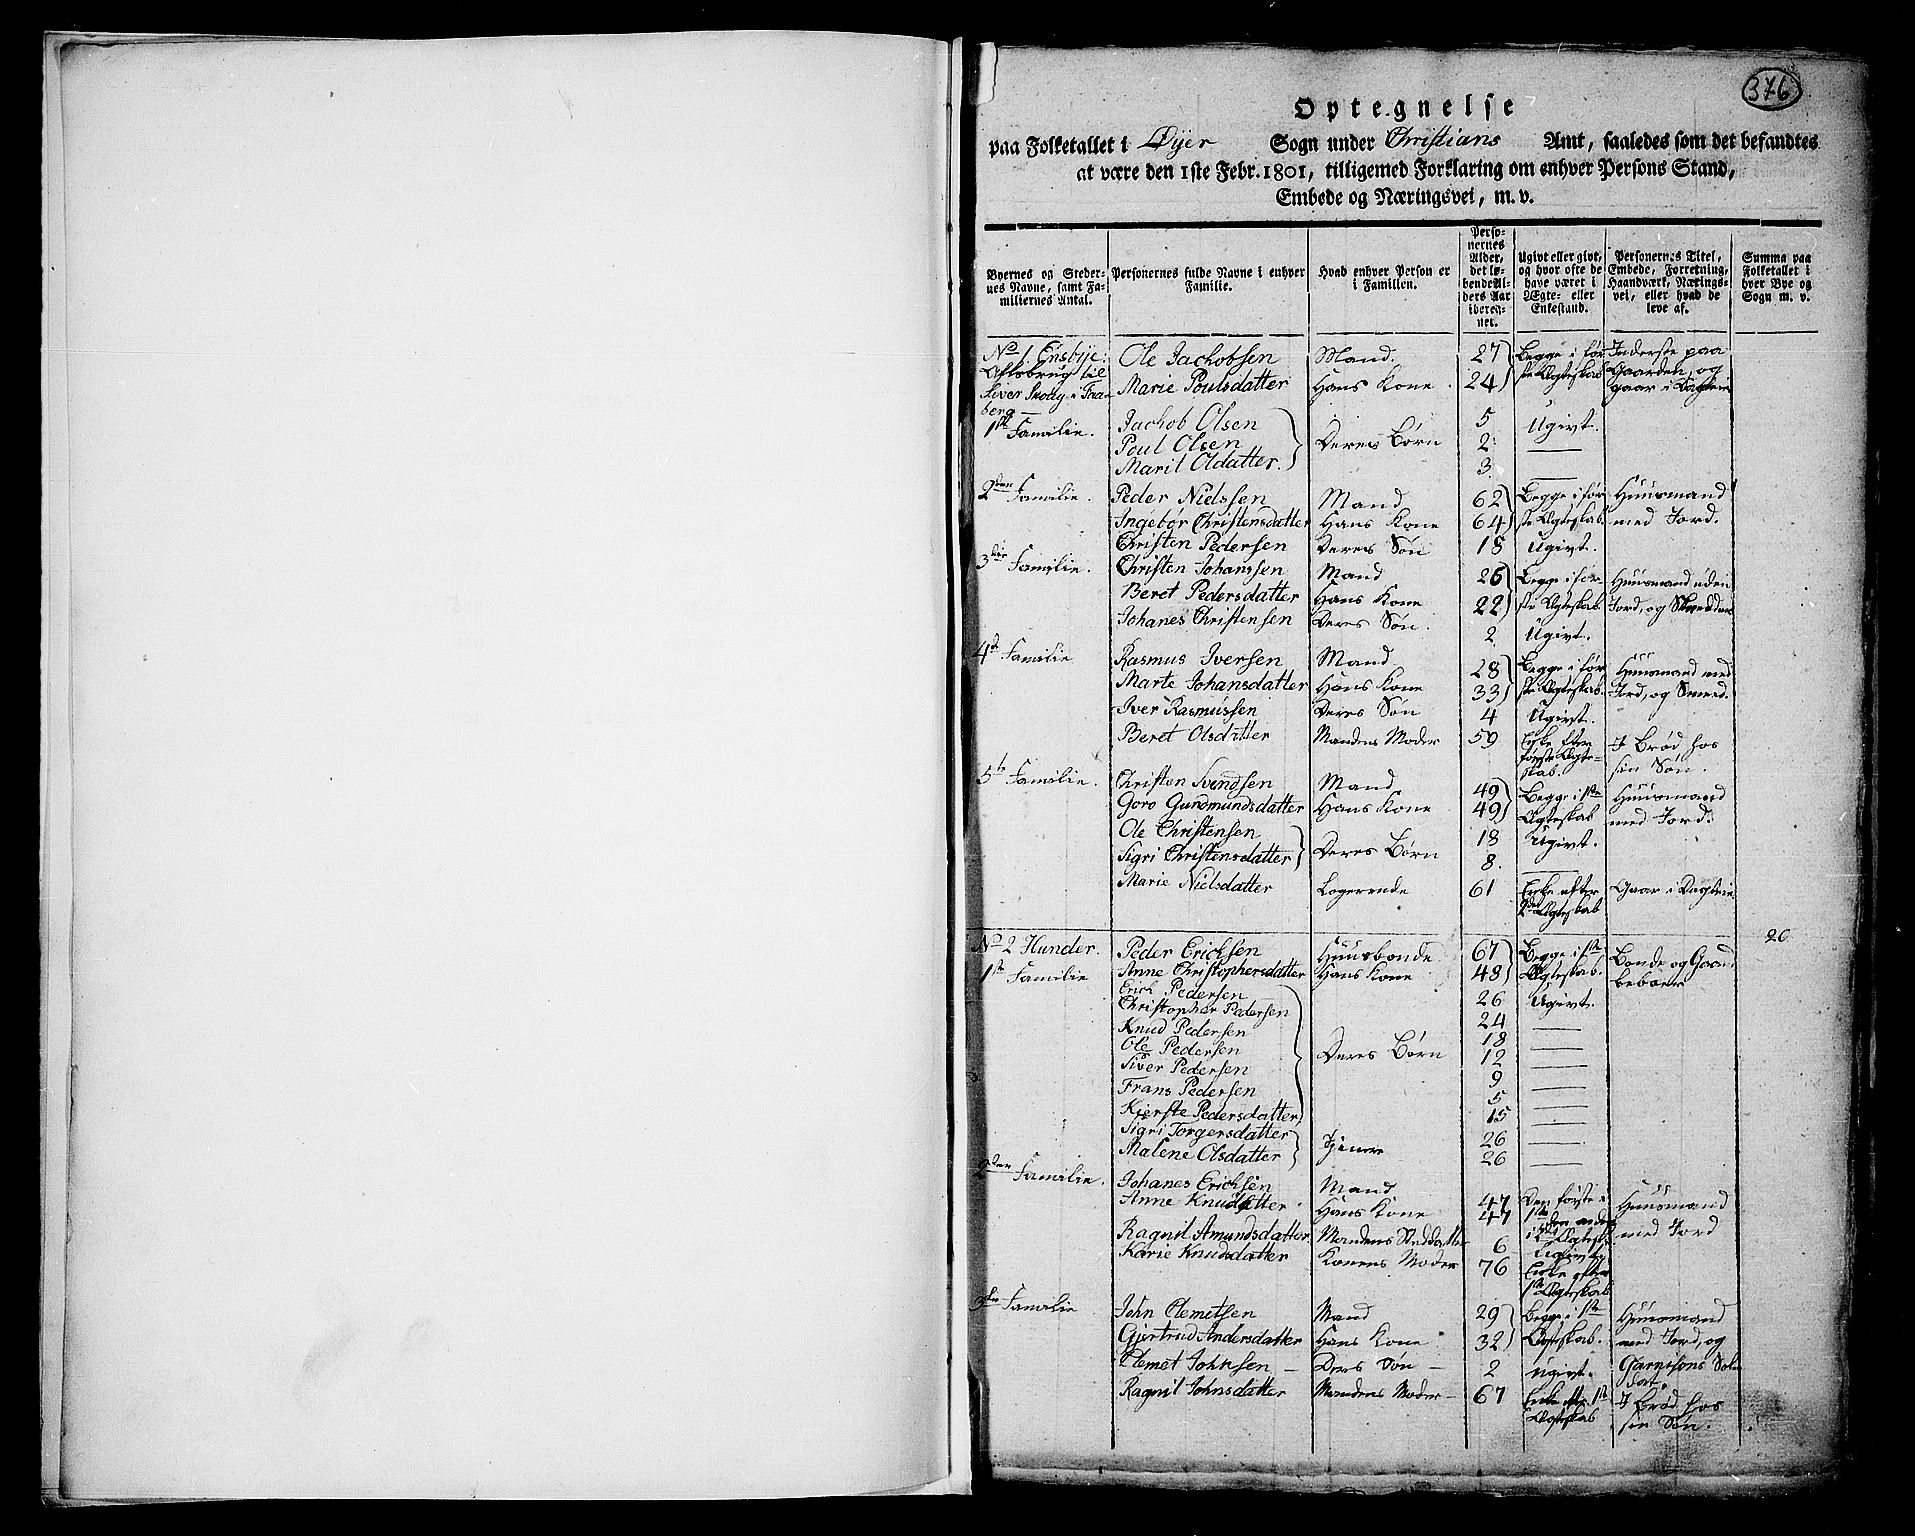 376
Optegnelse
paa Folketallet i Øyer Sogn under Christians Amt, saaledes som det befandtes
at være den 1ste Febr. 1801, tilligemed Forklaring om enhver Persons Stand,
Embede og Næringsvei, m. v.
Byernes og Steder-nes Navne, samt Fa-miliernes Antal. | Personernes fulde Navne i enhver Familie. | Hvad enhver Person er i Familien. | Perso-nernes Alder, det lø-bende Al-ders Aar iberegnet. | Ugivt eller givt, og hvor ofte de have været i Ægte- eller Enkestand. | Personernes Titel, Embede, Forretning, Haandværk, Nærings-vei, eller hvad de leve af. | Summa paa Folketallet i hver Bye og Sogn m. v.
No 1. Ensbye: Ole Jachobsen Mand. 27 Begge i før Inderste paa
Aflsbrug til Marie Poulsdatter Hans Kone 24 ste Ægteskab Gaarden, og
Siver Skoug i Faa- gaar i Dagleie
berg
1te Familie. Jachob Olsen 5 Ugivt.
Poul Olsen Deres Børn 2 —
Maril Oldatter. 3 —
2den Familie. Peder Nielssen Mand 62 Begge i før Huusmand
Ingebor Christensdatter Hans Kone 64 ste Ægteskab. med Jord.
Christen Pedersen Deres Søn 18 Ugivt.
3die Familie. Christen Johanssen Mand 26 Begge i før- Huusmand uden
Beret Pedersdatter Hans Kone 22 ste Ægteskab Jord, og Skredder
Johanes Christensen Deres Søn. 2 Ugivt.
4de Familie Rasmus Iversen Mand 28 Begge i før Huusmand med
Marte Johansdatter Hans Kone 33 ste Ægteskab. Jord, og Smed.
Iver Rasmussen Deres Søn 4 Ugivt.
Beret Olsdatter Mandens Moder 59 Enke efter I Brød hos
første Ægte- sin Søn.
skab.
5te Familie. Christen Svendsen Mand 49 Begge i 1ste Huusmand
Goro Gundmundsdatter Hans Kone 49 Ægteskab med Jord.
Ole Christensen 18 Ugivt.
Sigri Christensdatter Deres Børn 8. —
Marie Nielsdatter Logerende 61 Enke efter Gaar i Dagleie
2det Ægteskab
20
No 2 Hunder. Peder Ericksen Huusbonde 67 Begge i 1ste Bonde og Gaard
1te Familie Anne Christophersdatter Hans Kone 48 Ægteskab. beboer
Erich Pedersen 26 Ugivt.
Christopher Pedersen 24 —
Knud Pedersen 18 —
Ole Pedersen Deres Børn 12 —
Siver Pedersen 9 —
Frans Pedersen 5 —
Kierste Pedersdatter 15 —
Sigri Torgersdatter Tjenere 26 —
Malene Olsdatter 26 —
2den Familie. Johanes Ericksen Mand 47 Den første i Huusmand
Anne Knudsdatter Hans Kone 47 1ste den anden med Jord
Ragnil Amundsdatter Mandens Steddatter 6 i 2det Ægtesk.
Ugivt
Karie Knudsdatter Konens Moder 76 Enke efter
1ste Ægteskab
3die Familie John Clemetsen Mand 29 Begge i 1ste Huusmand
Gjertrud Andersdatter Hans Kone 32 Ægteskab. med Jord, og
Clemet Johnsen — Ders Søn — 2 ugivt. Garnisons Sol
dat.
Ragnil Johnsdatter Mandens Moder 67 Enke efter 1ste I Brød hos
Ægteskab sin Søn.